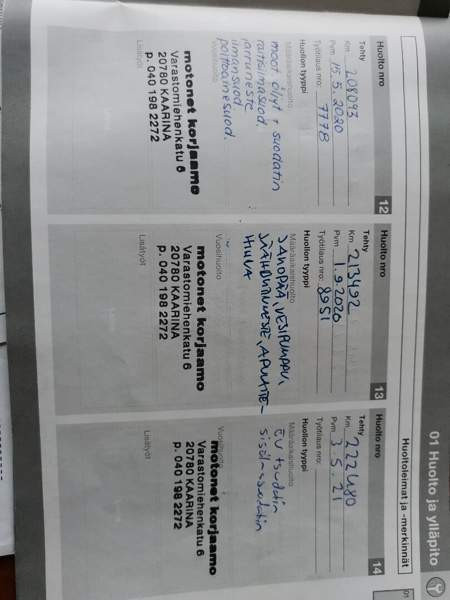 01 Huolto ja ylläpito
Huoltoleimat ja -merkinnät
Huolto nro 12
Tehty
Km 208093
Pvm 15.5.2020
Työtilaus nro: 7778
Huollon tyyppi
Määräaikaishuolto
moot öljyt + suodatin
raitisilmasuod.
jarruneste
ilmansuod.
polttoainesuod.
motonet korjaamo
Varastomiehenkatu 6
20780 KAARINA
p. 040 198 2272
Huolto nro 13
Tehty
Km 213492
Pvm 1.9.2020
Työtilaus nro: 8951
Huollon tyyppi
Määräaikaishuolto
JAKOPÄÄ, VESIPUMPPU,
JÄÄHDYTINNESTE, APULAITE-
HIHNA
Vuosihuolto
motonet korjaamo
Varastomiehenkatu 6
20780 KAARINA
p. 040 198 2272
Lisätyöt
Huolto nro 14
Tehty
Km 222480
Pvm 3.5.21
Työtilaus nro:
Huollon tyyppi
Määräaikaishuolto
sisäilmasuodatin
motonet korjaamo
Varastomiehenkatu 6
20780 KAARINA
p. 040 198 2272
Lisätyöt